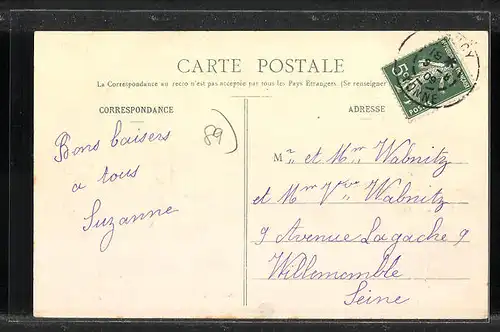 CARTE POSTALE
La Correspondance au recto n'est pas acceptée par tous les Pays Etrangers. (Se renseigner
CORRESPONDANCE
ADRESSE
89
Bons baisers
a tous
Suzanne
Mr et Mme Wabnitz
et Mme Vve Wabnitz
9 Avenue Lagache 9
Willemomble
Seine
5
YONNE